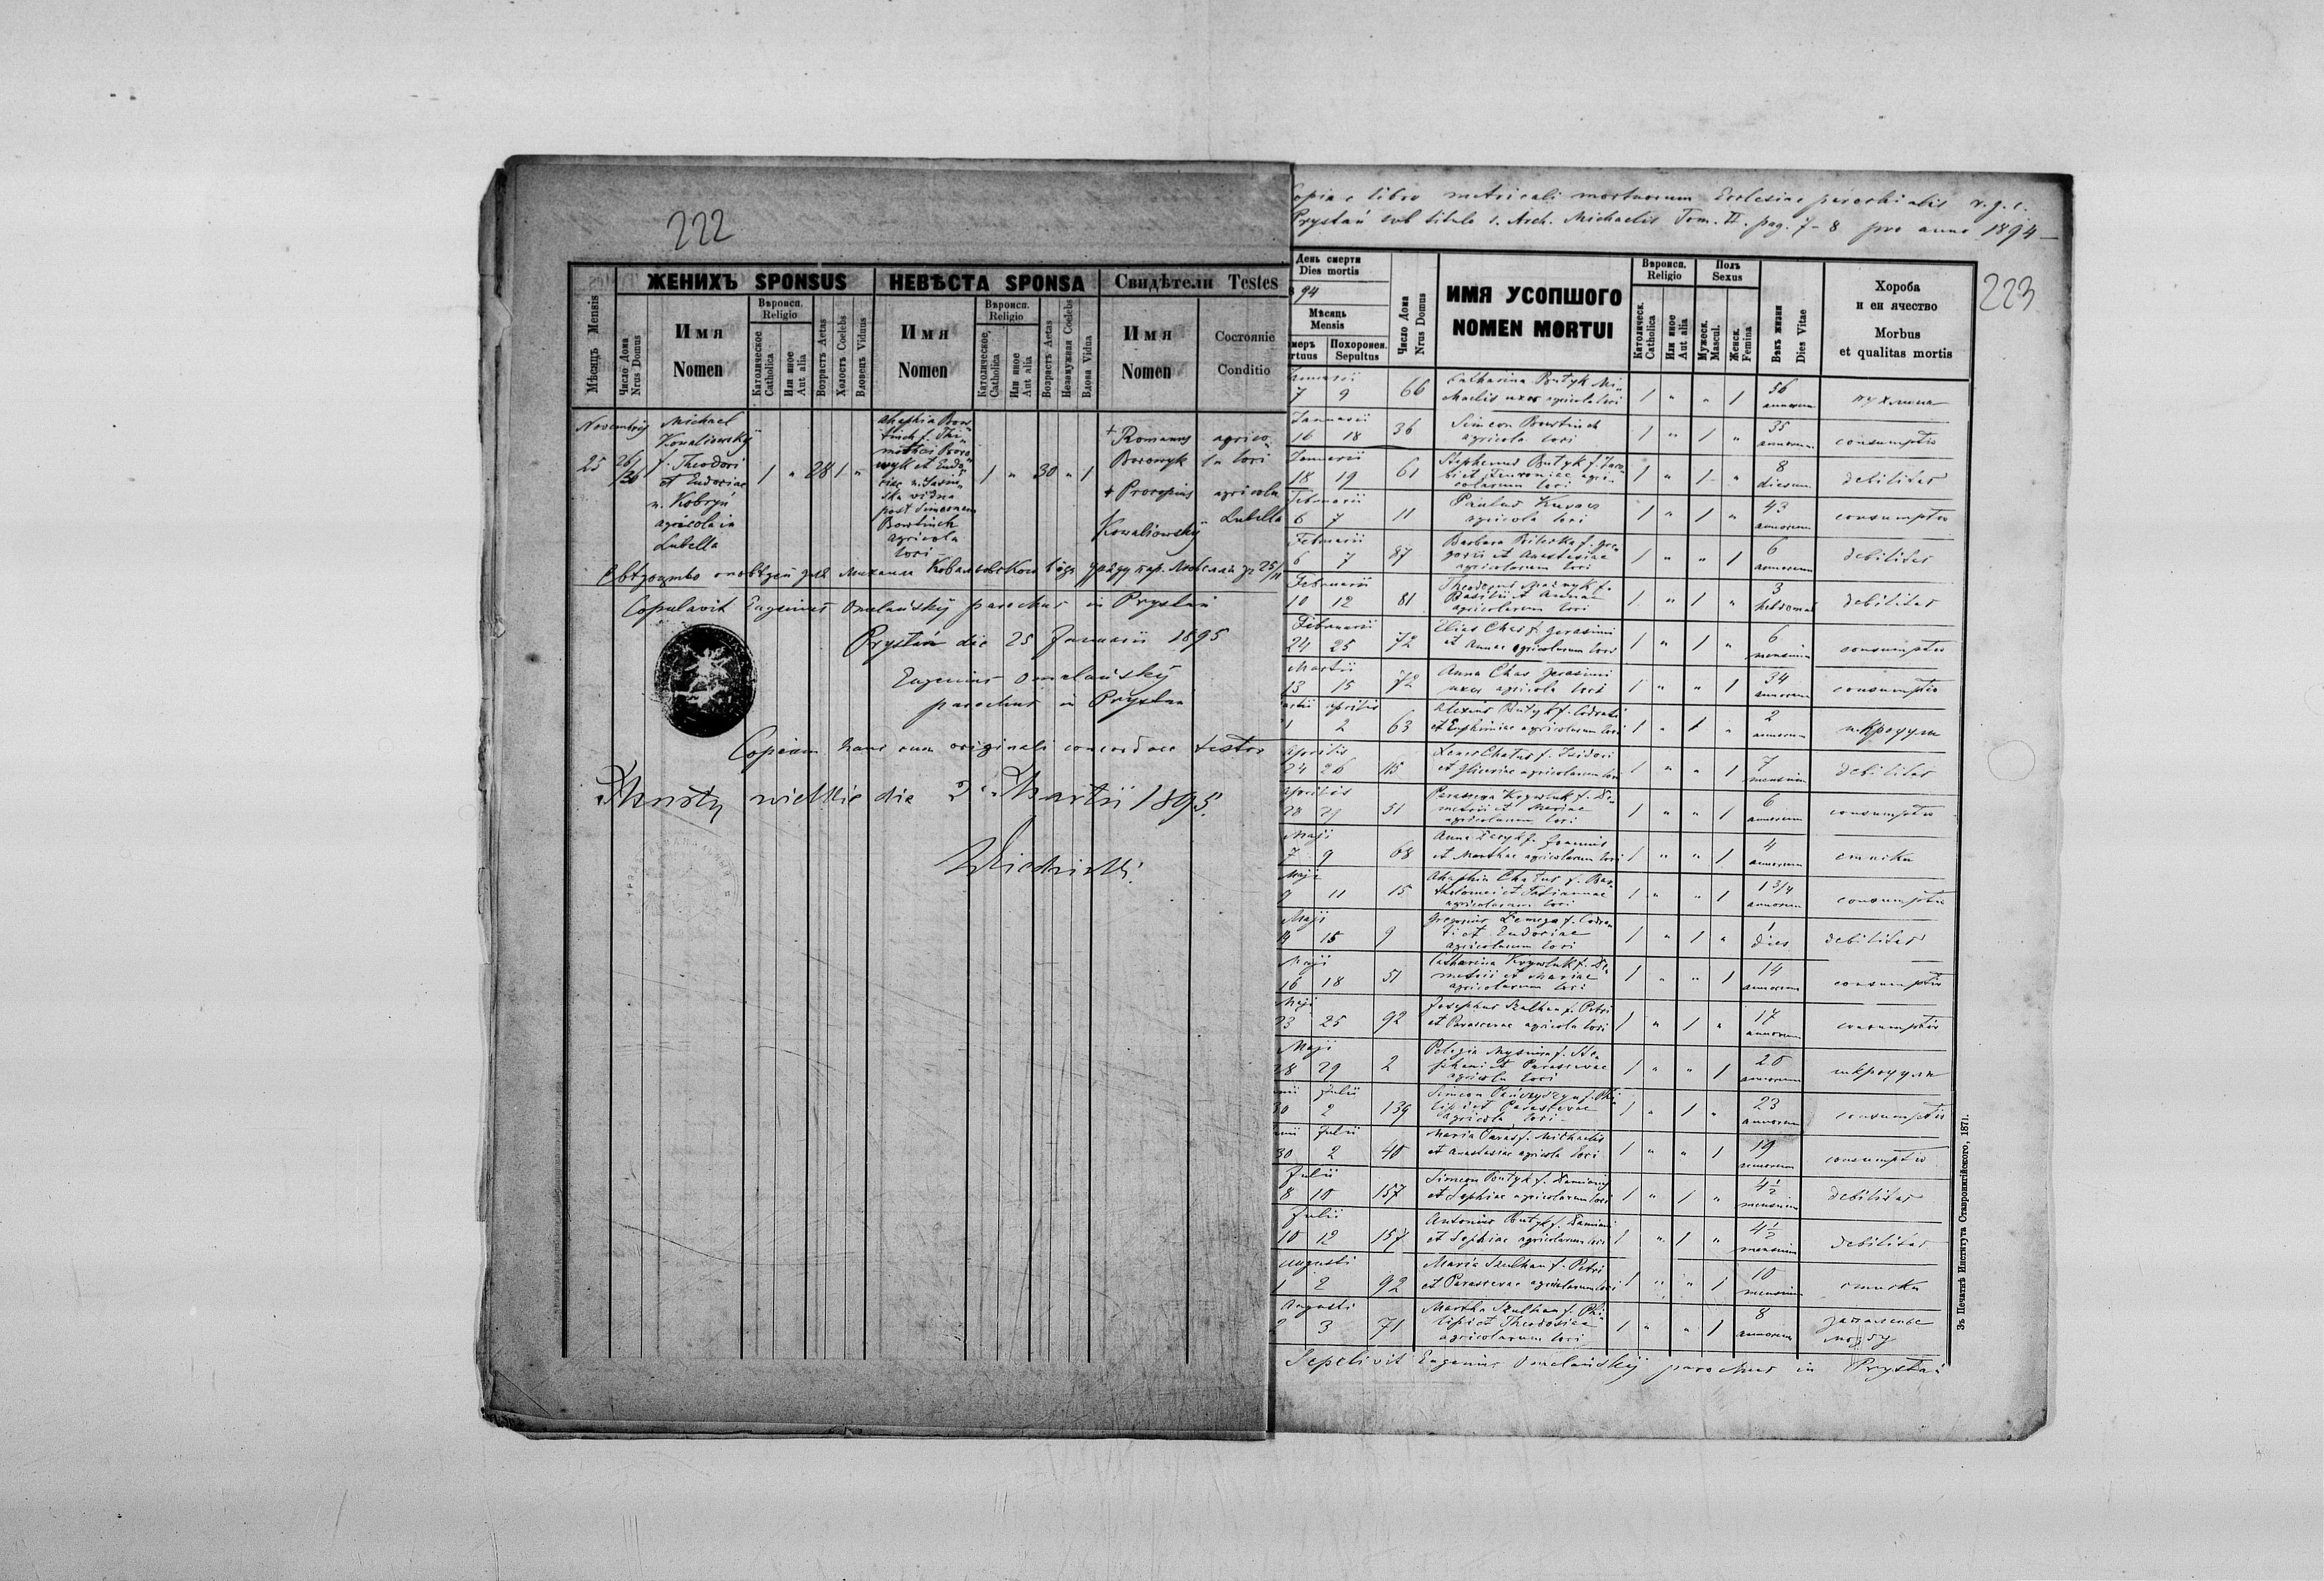 222
ЖЕНИХЪ SPONSUS
НЕВѢСТА SPONSA
Свидѣтели Testes
Мѣсяць Mensis
Число Дома
Nrus Domus
Имя
Nomen
Вѣроисп.
Religio
Католическое
Catholica
Или иное
Aut alia
Возрастъ Aetas
Холостъ Coelebs
Вдовецъ Viduus
Имя
Nomen
Вѣроисп.
Religio
Католическое,
Catholica
Или иное
Aut alia
Возрастъ Aetas
Незамужная Coelebs
Вдова Vidua
Имя
Nomen
Состояніе
Conditio
Novembris
25
26/30
Michael
Kowaliowskÿ
f. Theodori
et Eudociae
n. Kobryń
agricola in
Lubella
1 " 28 1 "
post Simeonem
Bowtinch
agricola
loci
1 " 30 " 1
+ Romanus
Boronyk
agrico
la loci
+ Procopius
Kowaliowskÿ
agricola
Lubella
Copulavit Eugenius Omelańskÿ parochus in Prystań
Prystań die 25 Januarii 1895
Eugenius Omelańskÿ
parochus in Prystań
Copiam hanc cum originali concordare testor
Mosty wielkie die 2 Martii 1895.
Copia e libro metricali mortuorum Ecclesiae parochialis r. g. c.
Prystań sub titulo s. Arch. Michaelis Tom. II. pag. 7-8 pro anno 1894
223
День смерти
Dies mortis
94
Мѣсяць
Mensis
Похоронен.
Sepultus
Число Дома
Nrus Domus
ИМЯ УСОПШОГО
NOMEN MORTUI
Вѣроисп.
Religio
Католическ.
Catholica
Или иное
Aut alia
Полъ
Sexus
Мужеск.
Mascul.
Женск.
Femina
Вѣкъ жизни
Dies Vitae
Хороба
и еи ячество
Morbus
et qualitas mortis
Januarii
7 9 66 Catharina Butyk Mi-
chaelis uxor agricola loci 1 " " 1 56 annorum пухлина
Januarii
16 18 36 Simeon Bowtinch
agricola loci 1 " 1 " 35 annorum consumptio
Januarii
18 19 61 Stephanus Butyk f.
1 " 1 " 8 dierum debilitas
Februarii
6 7 11 Paulus
agricola loci 1 " 1 " 43 annorum consumptio
Februarii
6 7 87 Barbara Bilecka f. Gre-
gorii et Anastasiae
agricolarum loci 1 " " 1 6 annorum debilitas
Februarii
10 12 81 Theodorus f.
Basilii et Annae
agricolarum loci 1 " 1 " 3 hebdomad debilitas
Februarii
24 25 72 Elias Chas f. Gerasimi
et Annae agricolarum loci 1 " 1 " 6 mensium consumptio
Martii
13 15 72 Anna Chas Gerasimi
uxor agricola loci 1 " " 1 34 annorum consumptio
Aprilis
2 63 Alexius Butyk f. Codrati
et Euphimiae agricolarum loci 1 " 1 " 2 annorum шкроуля
Aprilis
24 26 115 Chatus f. Isidori
et Gliceriae agricolarum loci 1 " " 1 7 mensium debilitas
Aprilis
28 29 51 Parasceva Krywluk f. De-
metrii et Mariae
agricolarum loci 1 " " 1 6 annorum consumptio
Maji
7 9 68 Anna f. Joannis
et Marthae agricolarum loci 1 " " 1 4 annorum
Maji
9 11 15 Agaphia Chatus f. Bar-
tholomei et Tatiannae
agricolarum loci 1 " " 1 1 3/4 annorum consumptio
Maji
14 15 9 Gregorius f. Codra-
ti et Eudociae
agricolarum loci 1 " 1 " 1 dies debilitas
Maji
16 18 51 Catharina Krywluk f. De-
metrii et Mariae
agricolarum loci 1 " " 1 14 annorum consumptio
Maji
23 25 92 Josephus Szulhan f. Petri
et Parascevae agricola loci 1 " 1 " 17 annorum consumptio
Maji
28 29 2 Pelagia f. Ste-
phani et Parascevae
agricola loci 1 " " 1 20 annorum шкроуля
Julii
30 2 139 Simeon f. Phi-
lipi et Parascevae
agricola loci 1 " 1 " 23 annorum consumptio
Julii
30 2 40 Maria Paras f. Michaelis
et Anastasiae agricola loci 1 " " 1 19 annorum consumptio
Julii
8 10 157 Simeon Butyk f. Damiani
et Sophiae agricolarum loci 1 " 1 " 4 1/2 mensium debilitas
Julii
10 12 157 Antonius Butyk f. Damiani
et Sophiae agricolarum loci 1 " 1 " 4 1/2 mensium debilitas
Augusti
1 2 92 Maria Szulhan f. Petri
et Parascevae agricolarum loci 1 " " 1 10 mensium
Augusti
2 3 71 Martha Szulhan f. Phi-
lipi et Theodosiae
agricolarum loci 1 " " 1 8 annorum запаленье
мозгу
Sepelivit Eugenius Omelańskÿ parochus in Prystań
Зъ Печатнѣ Института Ставропигійского, 1871.